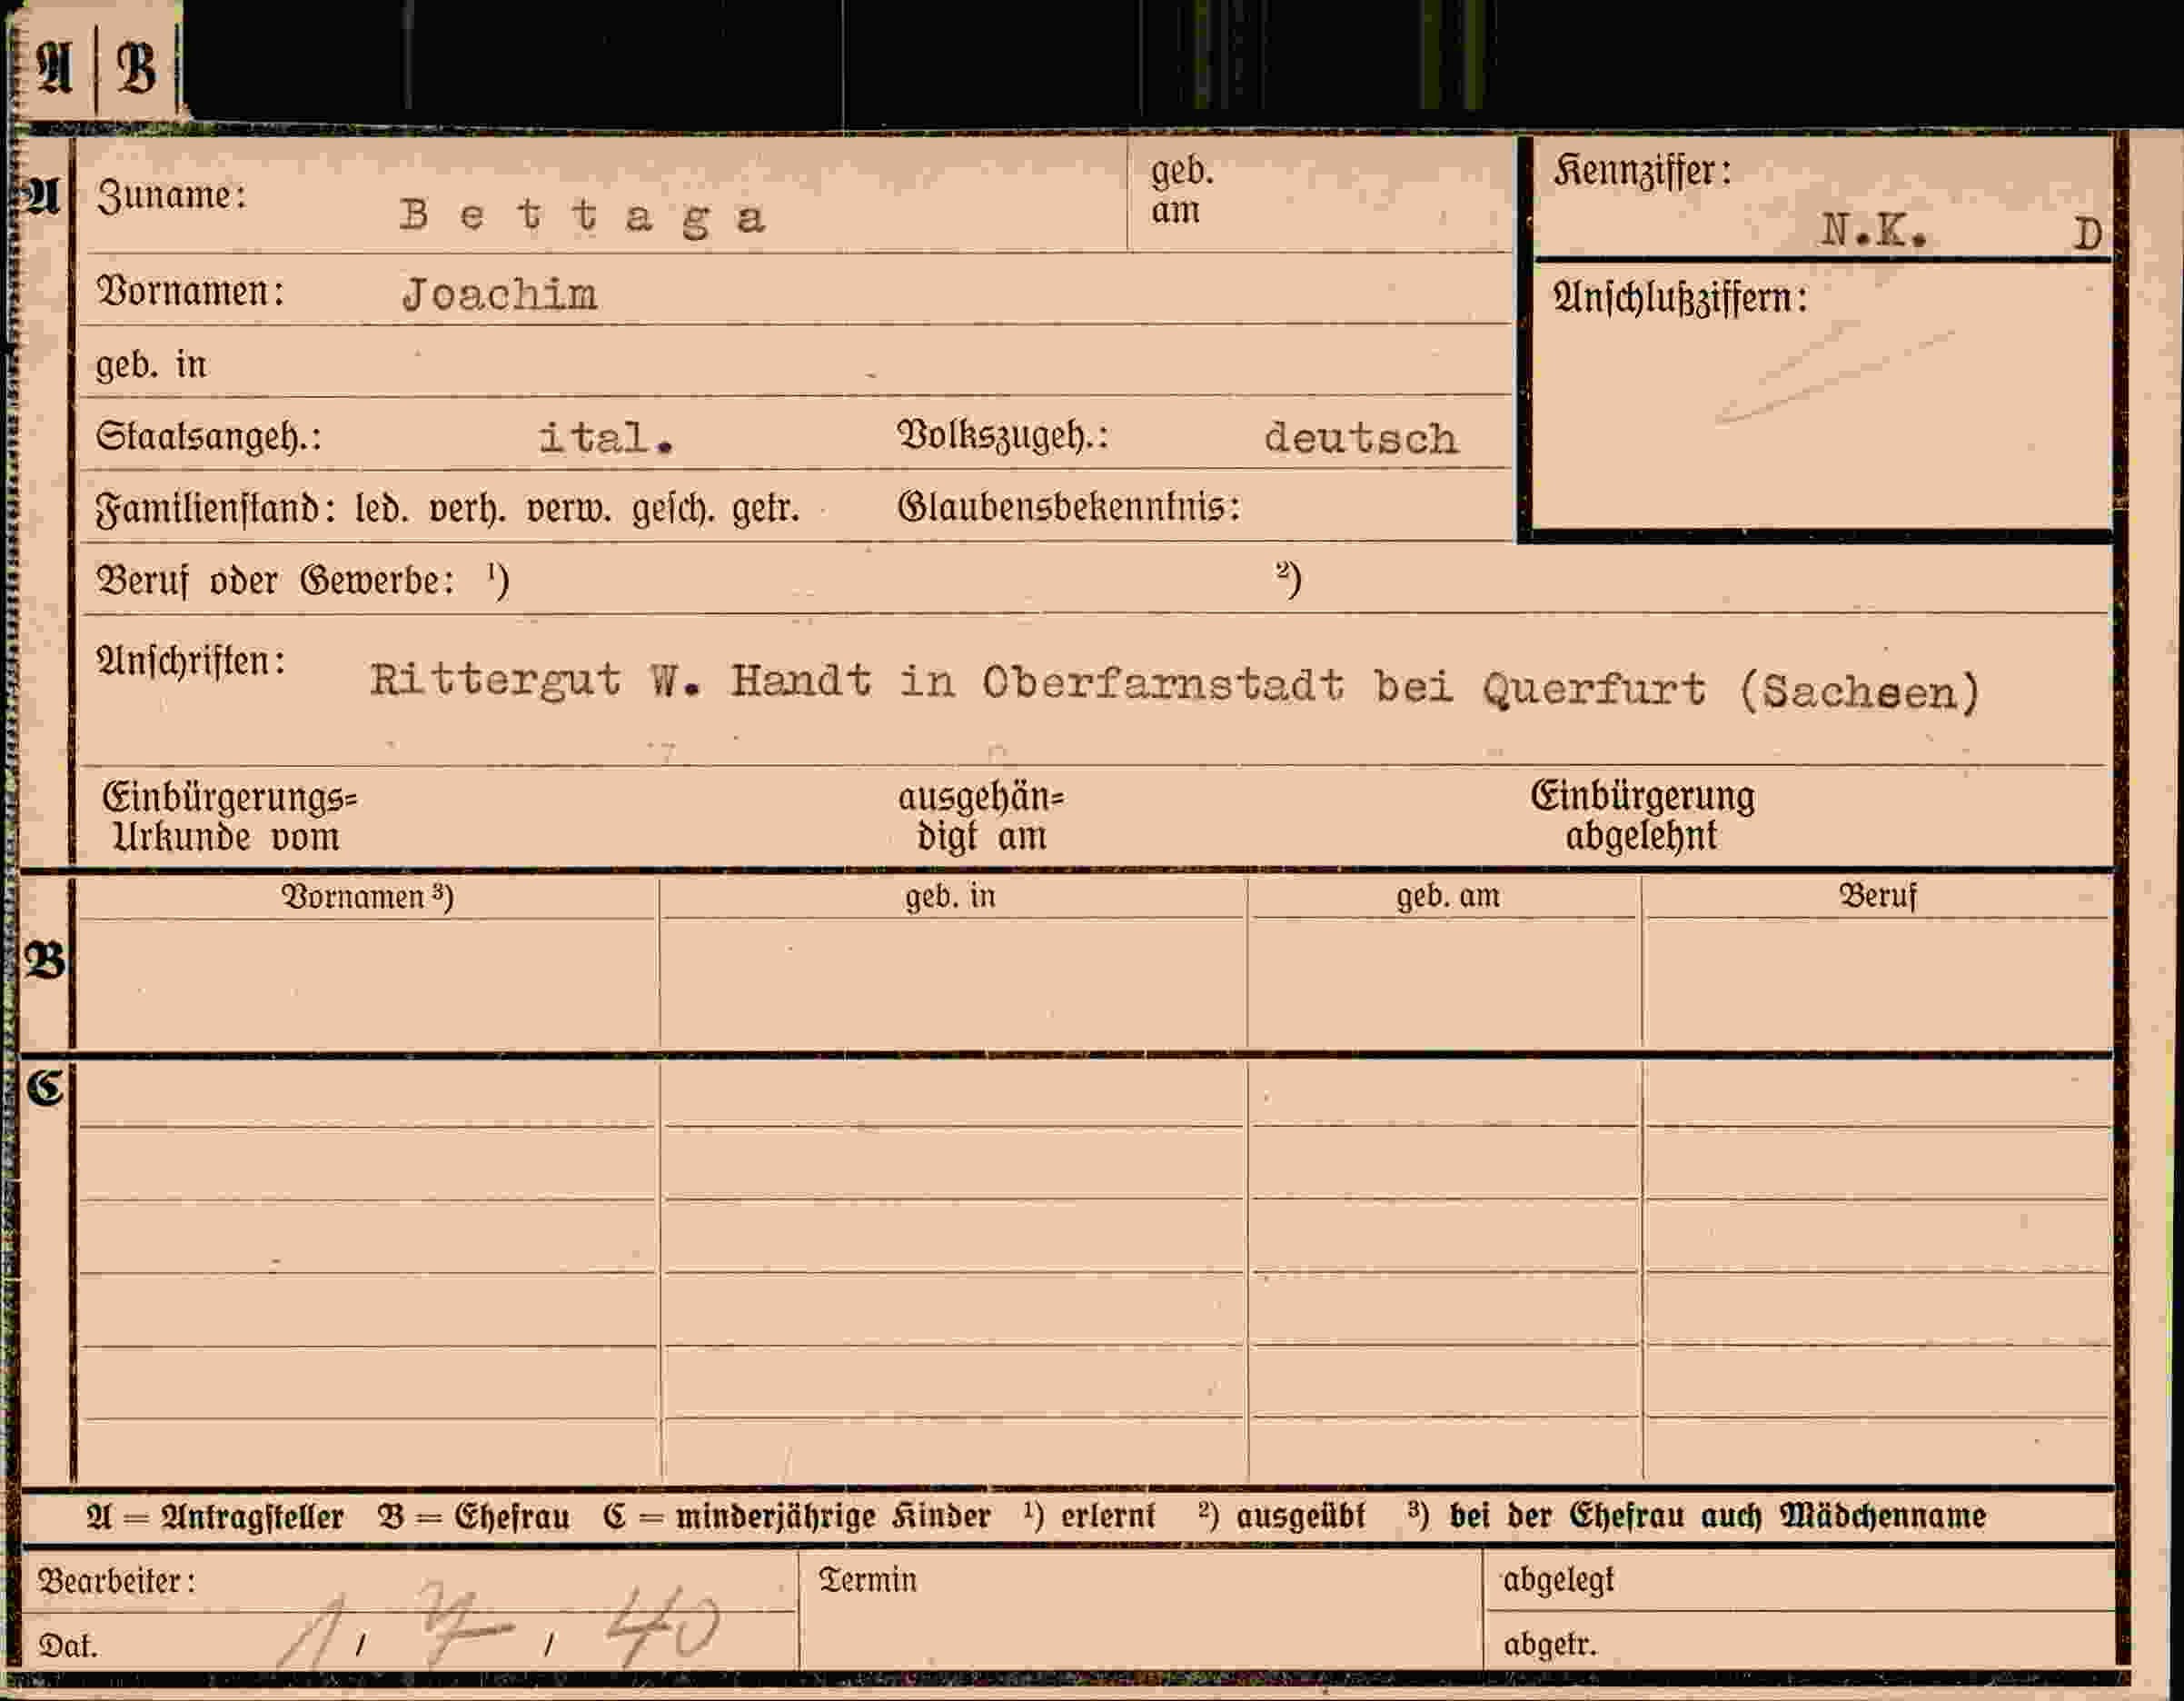 A | B
A Zuname: Bettaga geb. am
Kennziffer: N.K. D
Vornamen: Joachim
Anschlußziffern:
geb. in
Staatsangeh.: ital. Volkszugeh.: deutsch
Familienstand: led. verh. verw. gesch. getr. Glaubensbekenntnis:
Beruf oder Gewerbe: ¹) ²)
Anschriften: Rittergut W. Handt in Oberfarnstadt bei Querfurt (Sachsen)
Einbürgerungs= ausgehän= Einbürgerung
Urkunde vom digt am abgelehnt
Vornamen ³) geb. in geb. am Beruf
B
C
A = Antragsteller B = Ehefrau C = minderjährige Kinder ¹) erlernt ²) ausgeübt ³) bei der Ehefrau auch Mädchenname
Bearbeiter: Termin abgelegt
Dat. 1 / 7 / 40 abgetr.